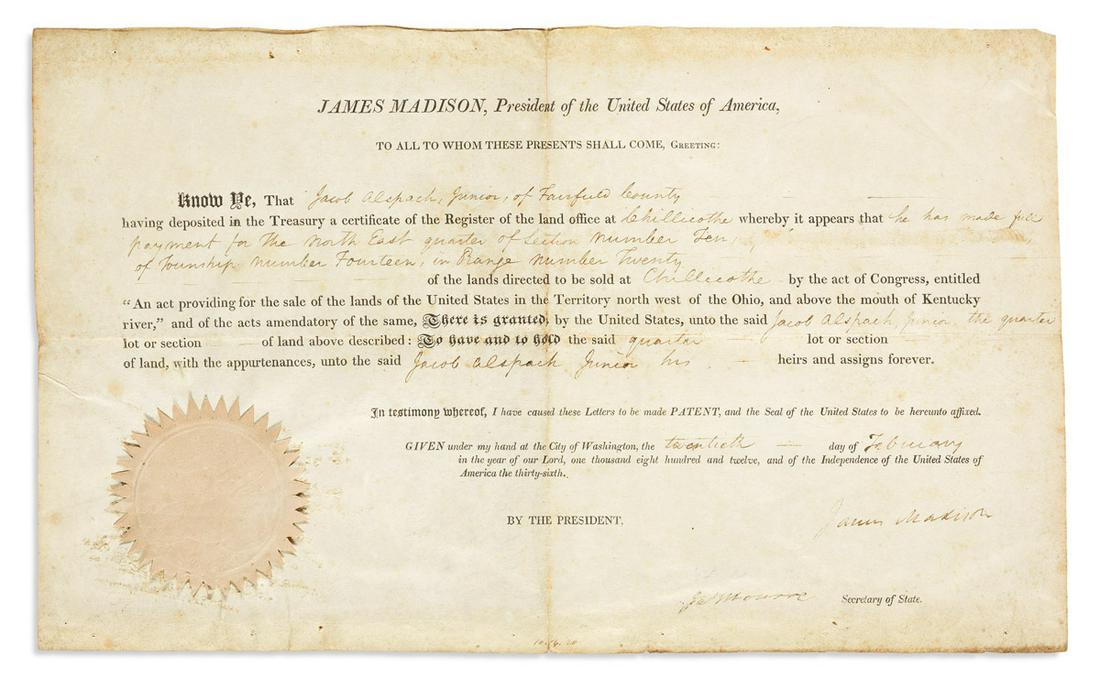 JAMES MADISON, President of the United States of America,
TO ALL TO WHOM THESE PRESENTS SHALL COME, GREETING:
Know Ye, That Jacob Alspach, Junior, of Fairfield County
having deposited in the Treasury a certificate of the Register of the land office at Chillicothe whereby it appears that he has made full
payment for the North East quarter of Section number Ten,
of Township number Fourteen, in Range number Twenty
of the lands directed to be sold at Chillicothe by the act of Congress, entitled
"An act providing for the sale of the lands of the United States in the Territory north west of the Ohio, and above the mouth of Kentucky
river," and of the acts amendatory of the same, There is granted, by the United States, unto the said Jacob Alspach, Junior, the quarter
lot or section of land above described: To have and to hold the said quarter lot or section
of land, with the appurtenances, unto the said Jacob Alspach Junior his heirs and assigns forever.
In testimony whereof, I have caused these Letters to be made PATENT, and the Seal of the United States to be hereunto affixed.
GIVEN under my hand at the City of Washington, the twentieth day of February
in the year of our Lord, one thousand eight hundred and twelve, and of the Independence of the United States of
America the thirty-sixth.
BY THE PRESIDENT,
James Madison
Jas Monroe Secretary of State.